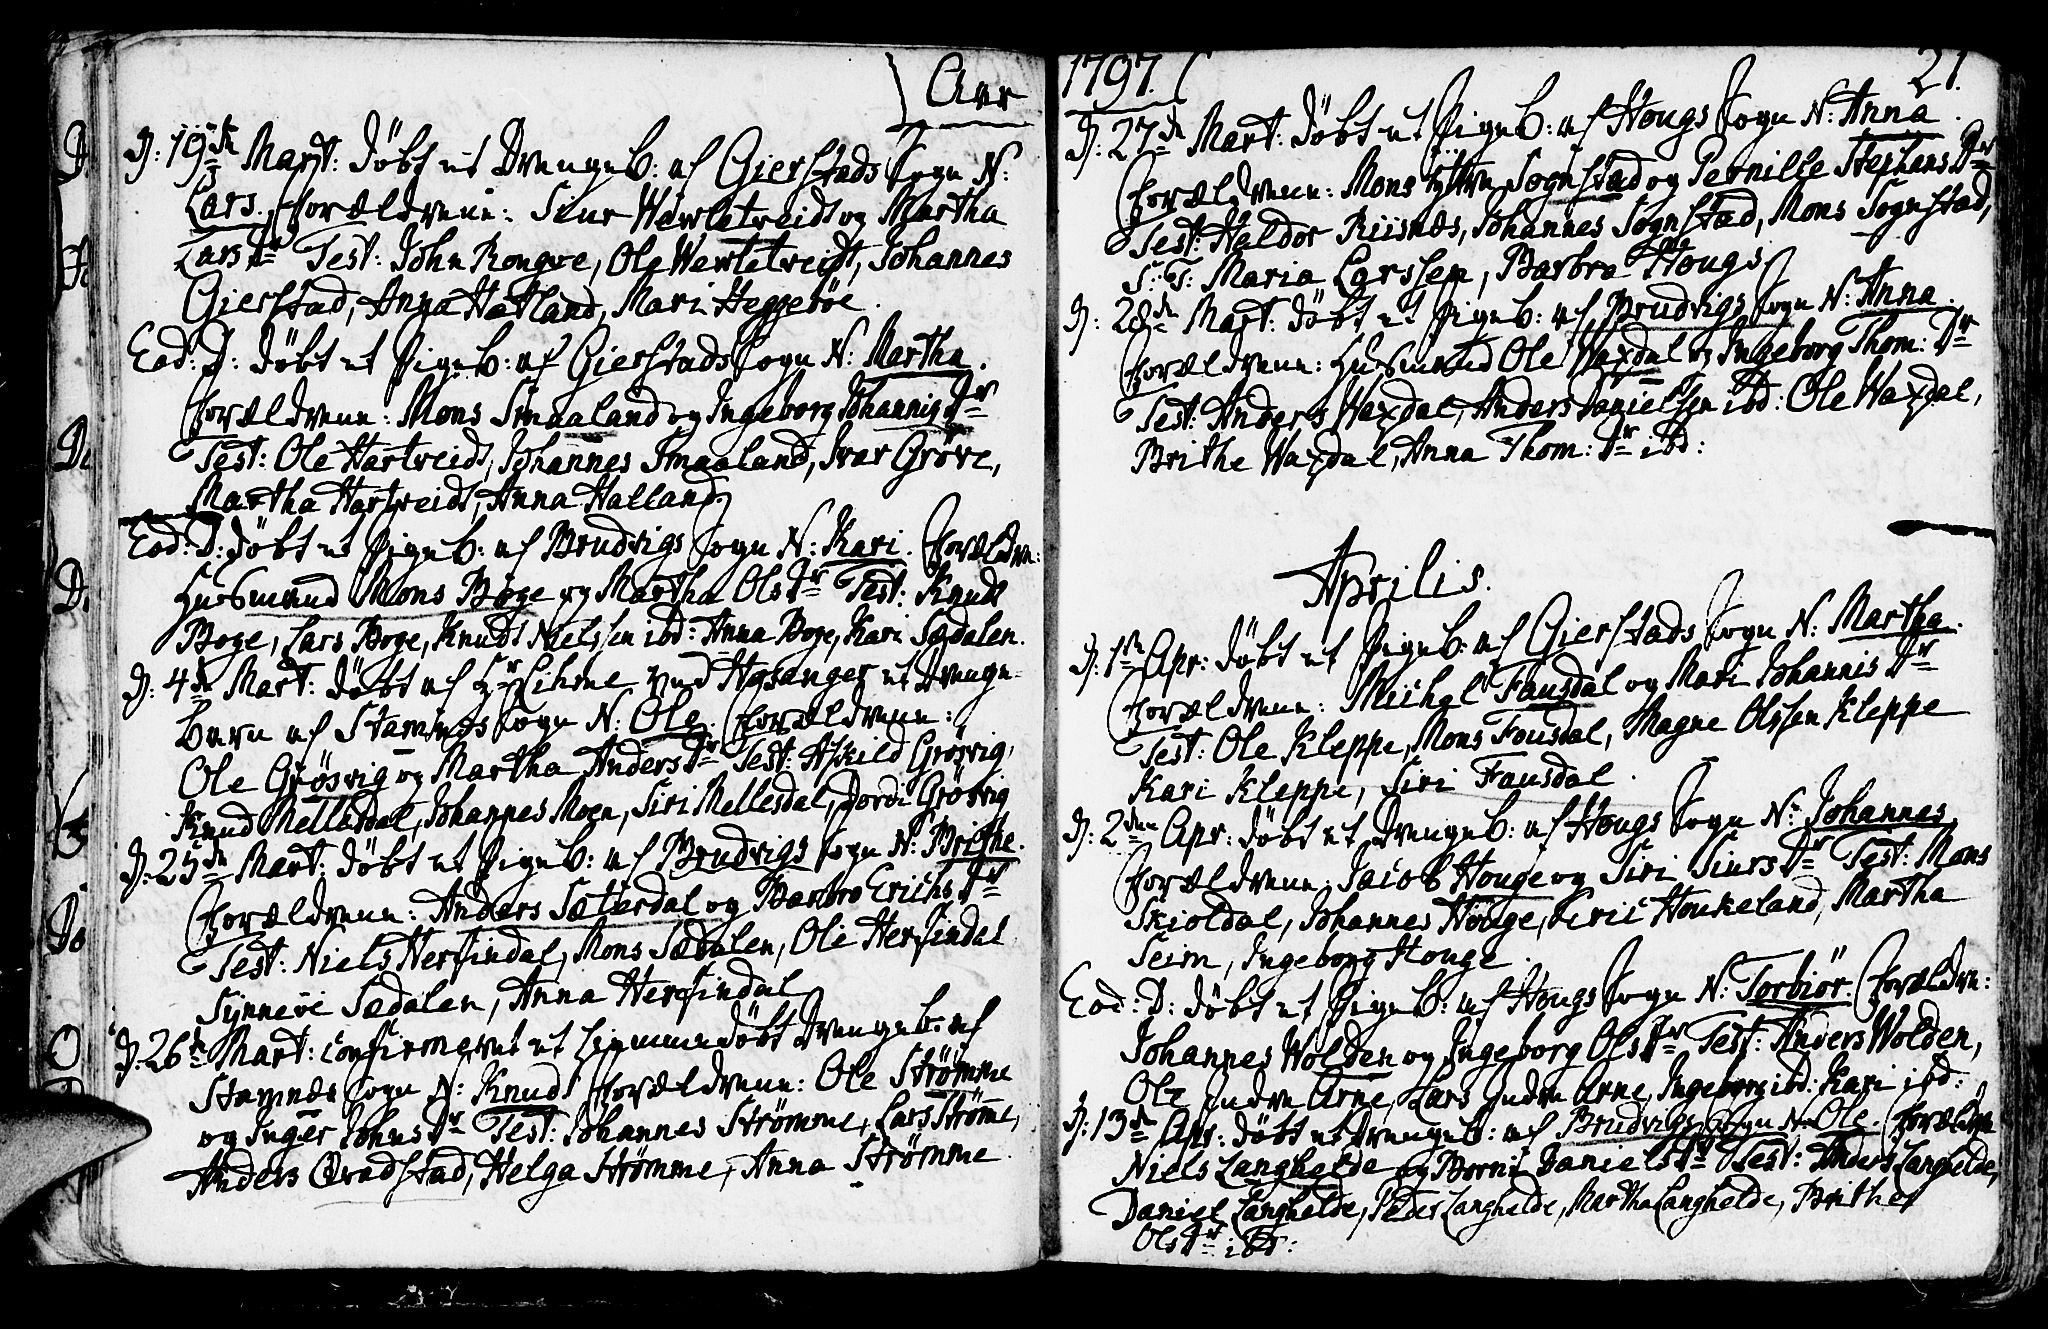 Aar
D: 19de Mart: döbt et Drengeb: af Gierstads Sogn N:
Lars. Forældrene: Siur Werletveidt og Martha
Lars Dr Test: John Rongve, Ole Werletveidt, Johannes
Gierstad, Anna Hatland, Mari Heggebøe.
Eod: D: döbt et Pigeb: af Gierstads Sogn N: Martha.
Forældrene: Mons Smaaland og Ingeborg Johannis Dr
Test: Ole Hartveidt, Johannes Smaaland, Ivar Gröve,
Martha Hartveidt, Anna Halland.
Eod: D: döbt et Pigeb: af Brudvigs Sogn N: Kari. Forældre:
Husmand Mons Boge og Martha Ols Dr Test: Knud
Boge, Lars Boge, Knud Nielssen ibd: Anna Boge, Kari Sædalen.
D: 4de Mart: döbt af Hr Lihme ved Hosanger et Drenge-
barn af Stamnes Sogn N: Ole. Forældrene:
Ole Grösvig og Martha Anders Dr Test: Askild Grösvig,
Knud Mellesdal, Johannes Moen, Siri Mellesdal, Dordi Grösvig
D: 25de Mart: döbt et Pigeb: af Brudvigs Sogn N: Brithe.
Forældrene: Anders Sæterdal og Barbro Erichs Dr
Test: Niels Herfindal, Mons Sædalen, Ole Herfindal
Synneve Sædalen, Anna Herfindal
D: 26de Mart: confirmeret et hjemmedöbt Drengeb: af
Stamnes Sogn N: Knud Forældrene: Ole Strömme
og Inger Johns Dr Test: Johannes Strömme, Lars Ströme,
Anders Qvadstad, Helga Strömme, Anna Strömme.
1797. 21.
D: 27de Mart: döbt et Pigeb: af Hougs Sogn N: Anna.
Forældrene: Mons Sognstad og Pernille Stephens Dr
Test: Haldor Riisnes, Johannes Sognstad, Mons Sognstad,
S: T: Maria Larssen, Barbro Hougs
D: 28de Mart: döbt et Pigeb: af Brudvigs Sogn N: Anna.
Forældrene: Husmand Ole Waxdal og Ingeborg Thom: Dr
Test: Anders Waxdal, Anders Danielssen ibd: Ole Waxdal,
Brithe Waxdal, Anna Thom: Dr ibd:
Aprilis.
D: 1te Apr: döbt et Pigeb: af Gierstads Sogn N: Martha.
Forældrene: Michel Fausdal og Mari Johannis Dr
Test: Ole Kleppe, Mons Fousdal, Magne Olssen Kleppe
Kari Kleppe, Siri Fausdal.
D: 2den Apr: döbt et Drengeb: af Hougs Sogn N: Johannes.
Forældrene: Jacob Houge og Siri Siurs Dr Test: Mons
Skioldal, Johannes Houge, Houkeland, Martha
Seim, Ingeborg Houge.
Eod: D: döbt et Pigeb: af Hougs Sogn N: Torbiör. Forældre:
Johannes Wolden og Ingeborg Ols Dr Test: Anders Wolden,
Ole Indre Arne, Lars Indre Arne, Ingeborg ibd: Kari ibd:
D: 13de Apr: döbt et Drengeb: af Brudvigs Sogn N: Ole. Forældre
Niels Langhelde og Daniels Dr Test: Anders Langhelde,
Daniel Langhelde, Peder Langhelde, Martha Langhelde, Brithe
Ols Dr ibd: